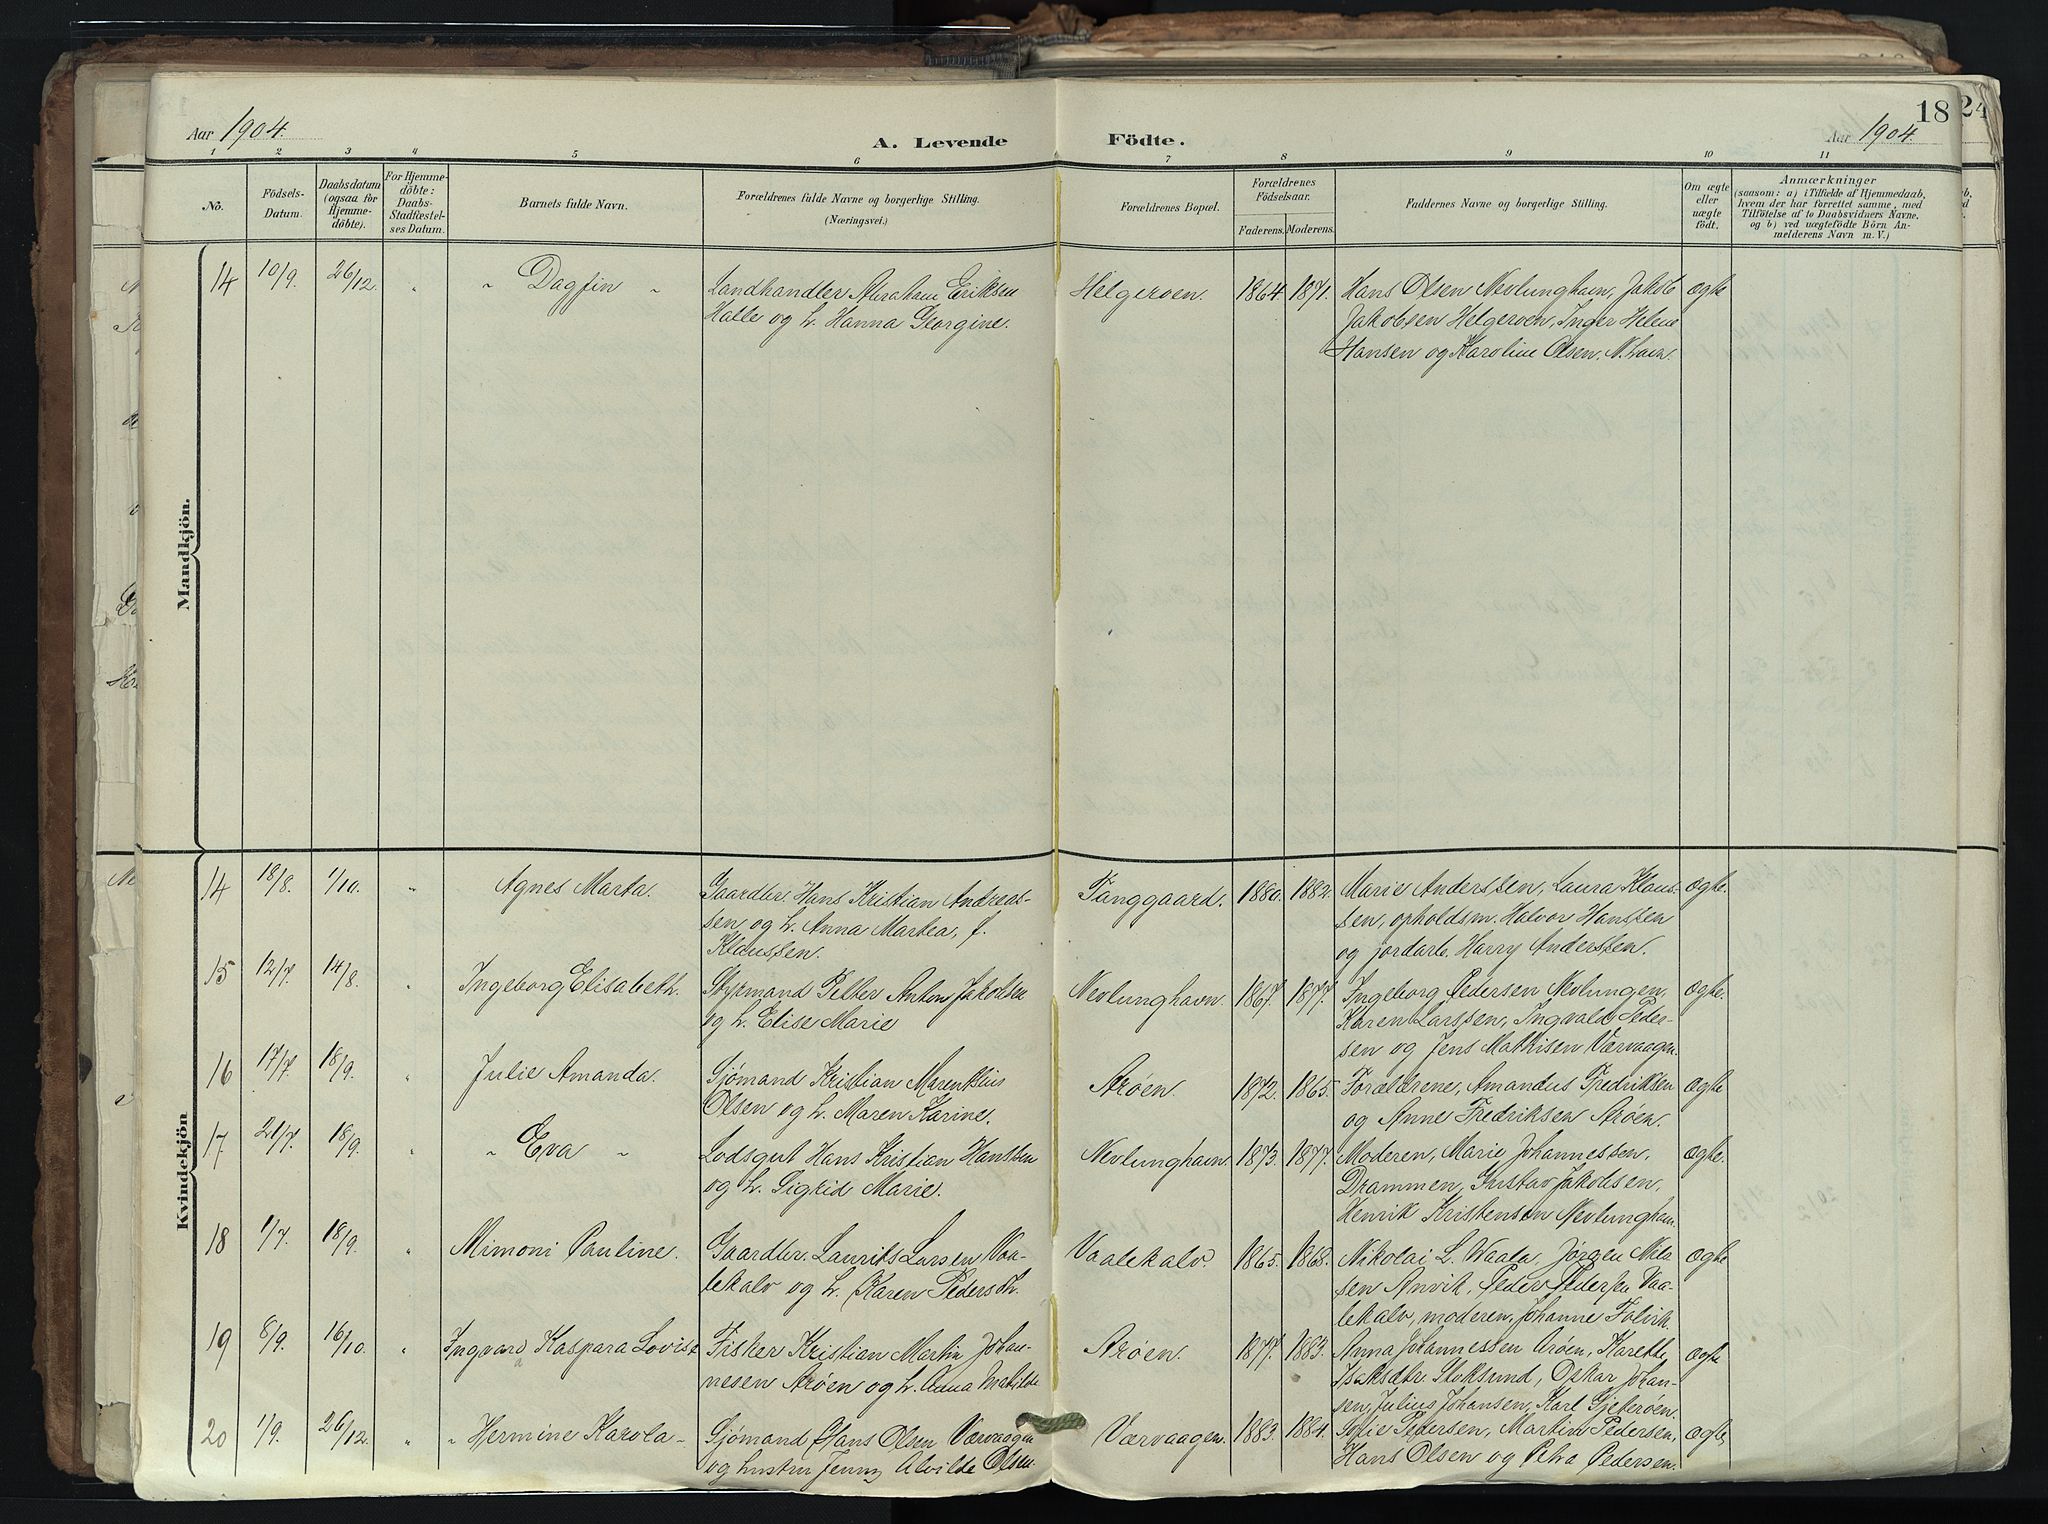 Aar 1904.
A. Levende Födte.
18
24
Aar 1904.
1 2 3 4 5 6 7 8 9 10 11
No.
Födsels-
Datum.
Daabsdatum
(ogsaa for
Hjemme-
döbte).
For Hjemme-
döbte:
Daabs-
Stadfæstel-
ses Datum.
Barnets fulde Navn.
Forældrenes fulde Navne og borgerlige Stilling.
(Næringsvei.)
Forældrenes Bopæl.
Forældrenes
Födselsaar.
Faderens. Moderens.
Faddernes Navne og borgerlige Stilling.
Om ægte
eller
uægte
födt.
Anmærkninger
(saasom: a) i Tilfælde af Hjemmedaab,
hvem der har forrettet samme, med
Tilföielse af to Daabsvidners Navne,
og b) ved uægtefödte Börn An-
melderens Navn m. V.)
Mandkjön.
14 10/9. 26/12. " " Dagfin " Landhandler Abraham Eriksen Helgeroen. 1864 1871. Hans Olsen Nevlunghavn, Jakob ægte
Halle og h. Hanna Georgine. Jakobsen Helgeroen, Inger Helene
Hansen og Karoline Olsen. N.havn.
Kvindekjön
14 18/8. 1/10. " Agnes Marta. Gaardbr. Hans Kristian Andreas- Tanggaard. 1880. 1882. Marie Anderssen, Laura Klaus- ægte.
sen og h. Anna Martea, f. sen, opholdsm. Halvor Hanssen
Klaussen. og jordarb. Harry Anderssen.
15 12/7. 14/8. " Ingeborg Elisabeth. Styrmand Petter Anton Jakobsen Nevlunghavn. 1867. 1877. Ingeborg Pedersen Nevlungen, ægte.
og h. Elise Marie Karen Larssen, Ingvald Peder-
sen og Jens Mathisen Værvaagen.
16 17/7. 18/9. " Julie Amanda. Sjømand Kristian Marenthius Arøen. 1872. 1865. Forældrene, Amandus Fredriksen ægte
Olsen og h. Maren Karine. og Anne Fredriksen Arøen.
17 21/7. 18/9. " " Eva " Lodsgut Hans Kristian Hanssen Nevlunghavn. 1873. 1877. Moderen, Marie Johannessen, ægte.
og h. Sigrid Marie. Drammen, Gustav Jakobsen,
Henrik Kristensen Nevlunghavn.
18 1/7. 18/9. " Mimoni Pauline. Gaardbr. Laurits Larsen Vaa- Vaalekalv 1865. 1868. Nikolai L. Waala, Jörgen Niel- ægte
lekalv og h. Karen Pedersdt. sen Anvik, Peder Pedersen Vaa-
lekalv, moderen, Johanne Folvik.
19 8/9. 16/10. " Ingvara Kaspara Lovise Fisker Kristian Martin Johan- Arøen. 1877. 1883. Anna Johannessen Arøen, Karethe ægte
nesen Arøen og h. Anna Matilde Isaksdtr. Stoksund, Oskar Johan-
sen, Julius Johansen, Karl Gjeterøen.
20 1/9. 26/12. " " Hermine Karola " Sjømand Hans Olsen Værvaagen Værvaagen. 1883. 1884. Sofie Pedersen, Martin Pedersen, ægte,
og hustru Jenny Alvilde Olsen. Hans Olsen og Petra Pedersen.